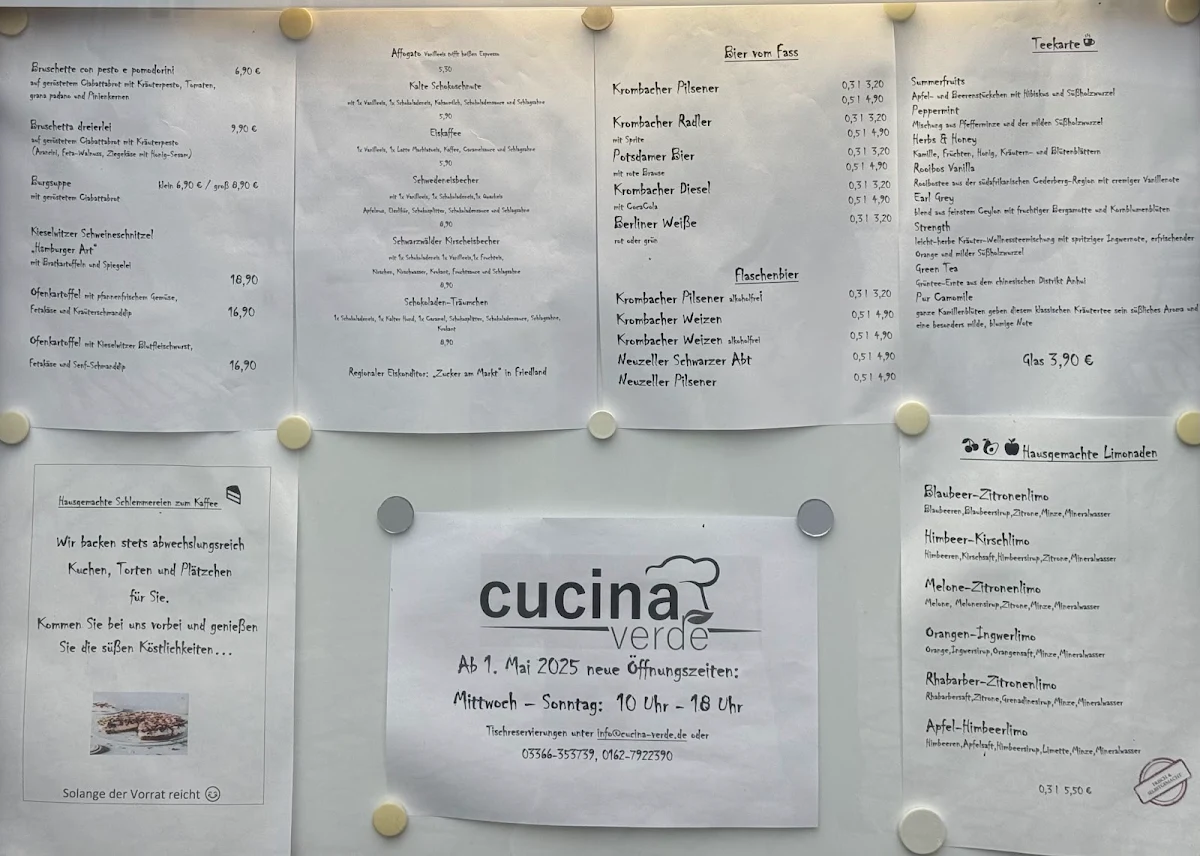 Bruschette con pesto e pomodorini 6,90 €
auf geröstetem Ciabattabrot mit Kräuterpesto, Tomaten,
grana padano und Pinienkernen
Bruschetta dreierlei 9,90 €
auf geröstetem Ciabattabrot mit Kräuterpesto
(Arancini, Feta-Walnuss, Ziegekäse mit Honig-Sesam)
Burgsuppe klein 6,90 € / groß 8,90 €
mit geröstetem Ciabattabrot
Kieselwitzer Schweineschnitzel
„Hamburger Art"
mit Bratkartoffeln und Spiegelei
18,90
Ofenkartoffel mit pfannenfrischem Gemüse,
Fetakäse und Kräuterschmanddip 16,90
Ofenkartoffel mit Kieselwitzer Blutfleischwurst,
Fetakäse und Senf-Schmanddip 16,90
Affogato Vanilleeis trifft heißen Espresso
5,30
Kalte Schokoschnute
mit 1x Vanilleeis, 1x Schokoladeneis, Kakaomilch, Schokoladensauce und Schlagsahne
5,90
Eiskaffee
1x Vanilleeis, 1x Latte Macchiatoeis, Kaffee, Caramelsauce und Schlagsahne
5,90
Schwedeneisbecher
mit 1x Vanilleeis, 1x Schokoladeneis,1x Quarkeis
Apfelmus, Eierlikör, Schokosplitter, Schokoladensauce und Schlagsahne
8,90
Schwarzwälder Kirscheisbecher
mit 1x Schokoladeneis 1x Vanilleeis,1x Fruchteis,
Kirschen, Kirschwasser, Krokant, Fruchtsauce und Schlagsahne
8,90
Schokoladen-Träumchen
1x Schokoladeneis, 1x Kalter Hund, 1x Caramel, Schokosplitter, Schokoladensauce, Schlagsahne,
Krokant
8,90
Regionaler Eiskonditor: „Zucker am Markt" in Friedland
Bier vom Fass
Krombacher Pilsener 0,3 l 3,20
0,5 l 4,90
Krombacher Radler 0,3 l 3,20
mit Sprite 0,5 l 4,90
Potsdamer Bier 0,3 l 3,20
mit rote Brause 0,5 l 4,90
Krombacher Diesel 0,3 l 3,20
mit CocaCola 0,5 l 4,90
Berliner Weiße 0,3 l 3,20
rot oder grün
Flaschenbier
Krombacher Pilsener alkoholfrei 0,3 l 3,20
Krombacher Weizen 0,5 l 4,90
Krombacher Weizen alkoholfrei 0,5 l 4,90
Neuzeller Schwarzer Abt 0,5 l 4,90
Neuzeller Pilsener 0,5 l 4,90
Teekarte
Summerfruits
Apfel- und Beerenstückchen mit Hibiskus und Süßholzwurzel
Peppermint
Mischung aus Pfefferminze und der milden Süßholzwurzel
Herbs & Honey
Kamille, Früchten, Honig, Kräutern- und Blütenblättern
Rooibos Vanilla
Rooibostee aus der südafrikanischen Cederberg-Region mit cremiger Vanillenote
Earl Grey
blend aus feinstem Ceylon mit fruchtiger Bergamotte und Kornblumenblüten
Strength
leicht-herbe Kräuter-Wellnessteemischung mit spritziger Ingwernote, erfrischender
Orange und milder Süßholzwurzel
Green Tea
Grüntee-Ernte aus dem chinesischen Distrikt Anhui
Pur Camomile
ganze Kamillenblüten geben diesem klassischen Kräutertee sein süßliches Aroma und
eine besonders milde, blumige Note
Glas 3,90 €
Hausgemachte Schlemmereien zum Kaffee
Wir backen stets abwechslungsreich
Kuchen, Torten und Plätzchen
für Sie.
Kommen Sie bei uns vorbei und genießen
Sie die süßen Köstlichkeiten...
Solange der Vorrat reicht ☺
cucina
verde
Ab 1. Mai 2025 neue Öffnungszeiten:
Mittwoch – Sonntag: 10 Uhr – 18 Uhr
Tischreservierungen unter info@cucina-verde.de oder
03366-353739, 0162-7922390
Hausgemachte Limonaden
Blaubeer-Zitronenlimo
Blaubeeren,Blaubeersirup,Zitrone,Minze,Mineralwasser
Himbeer-Kirschlimo
Himbeeren,Kirschsaft,Himbeersirup,Zitrone,Mineralwasser
Melone-Zitronenlimo
Melone, Melonensirup,Zitrone,Minze,Mineralwasser
Orangen-Ingwerlimo
Orange,Ingwersirup,Orangensaft,Minze,Mineralwasser
Rhabarber-Zitronenlimo
Rhabarbersaft,Zitrone,Grenadinesirup,Minze,Mineralwasser
Apfel-Himbeerlimo
Himbeeren,Apfelsaft,Himbeersirup,Limette,Minze,Mineralwasser
0,3 l 5,50 €
FRISCH &
SELBSTGEMACHT